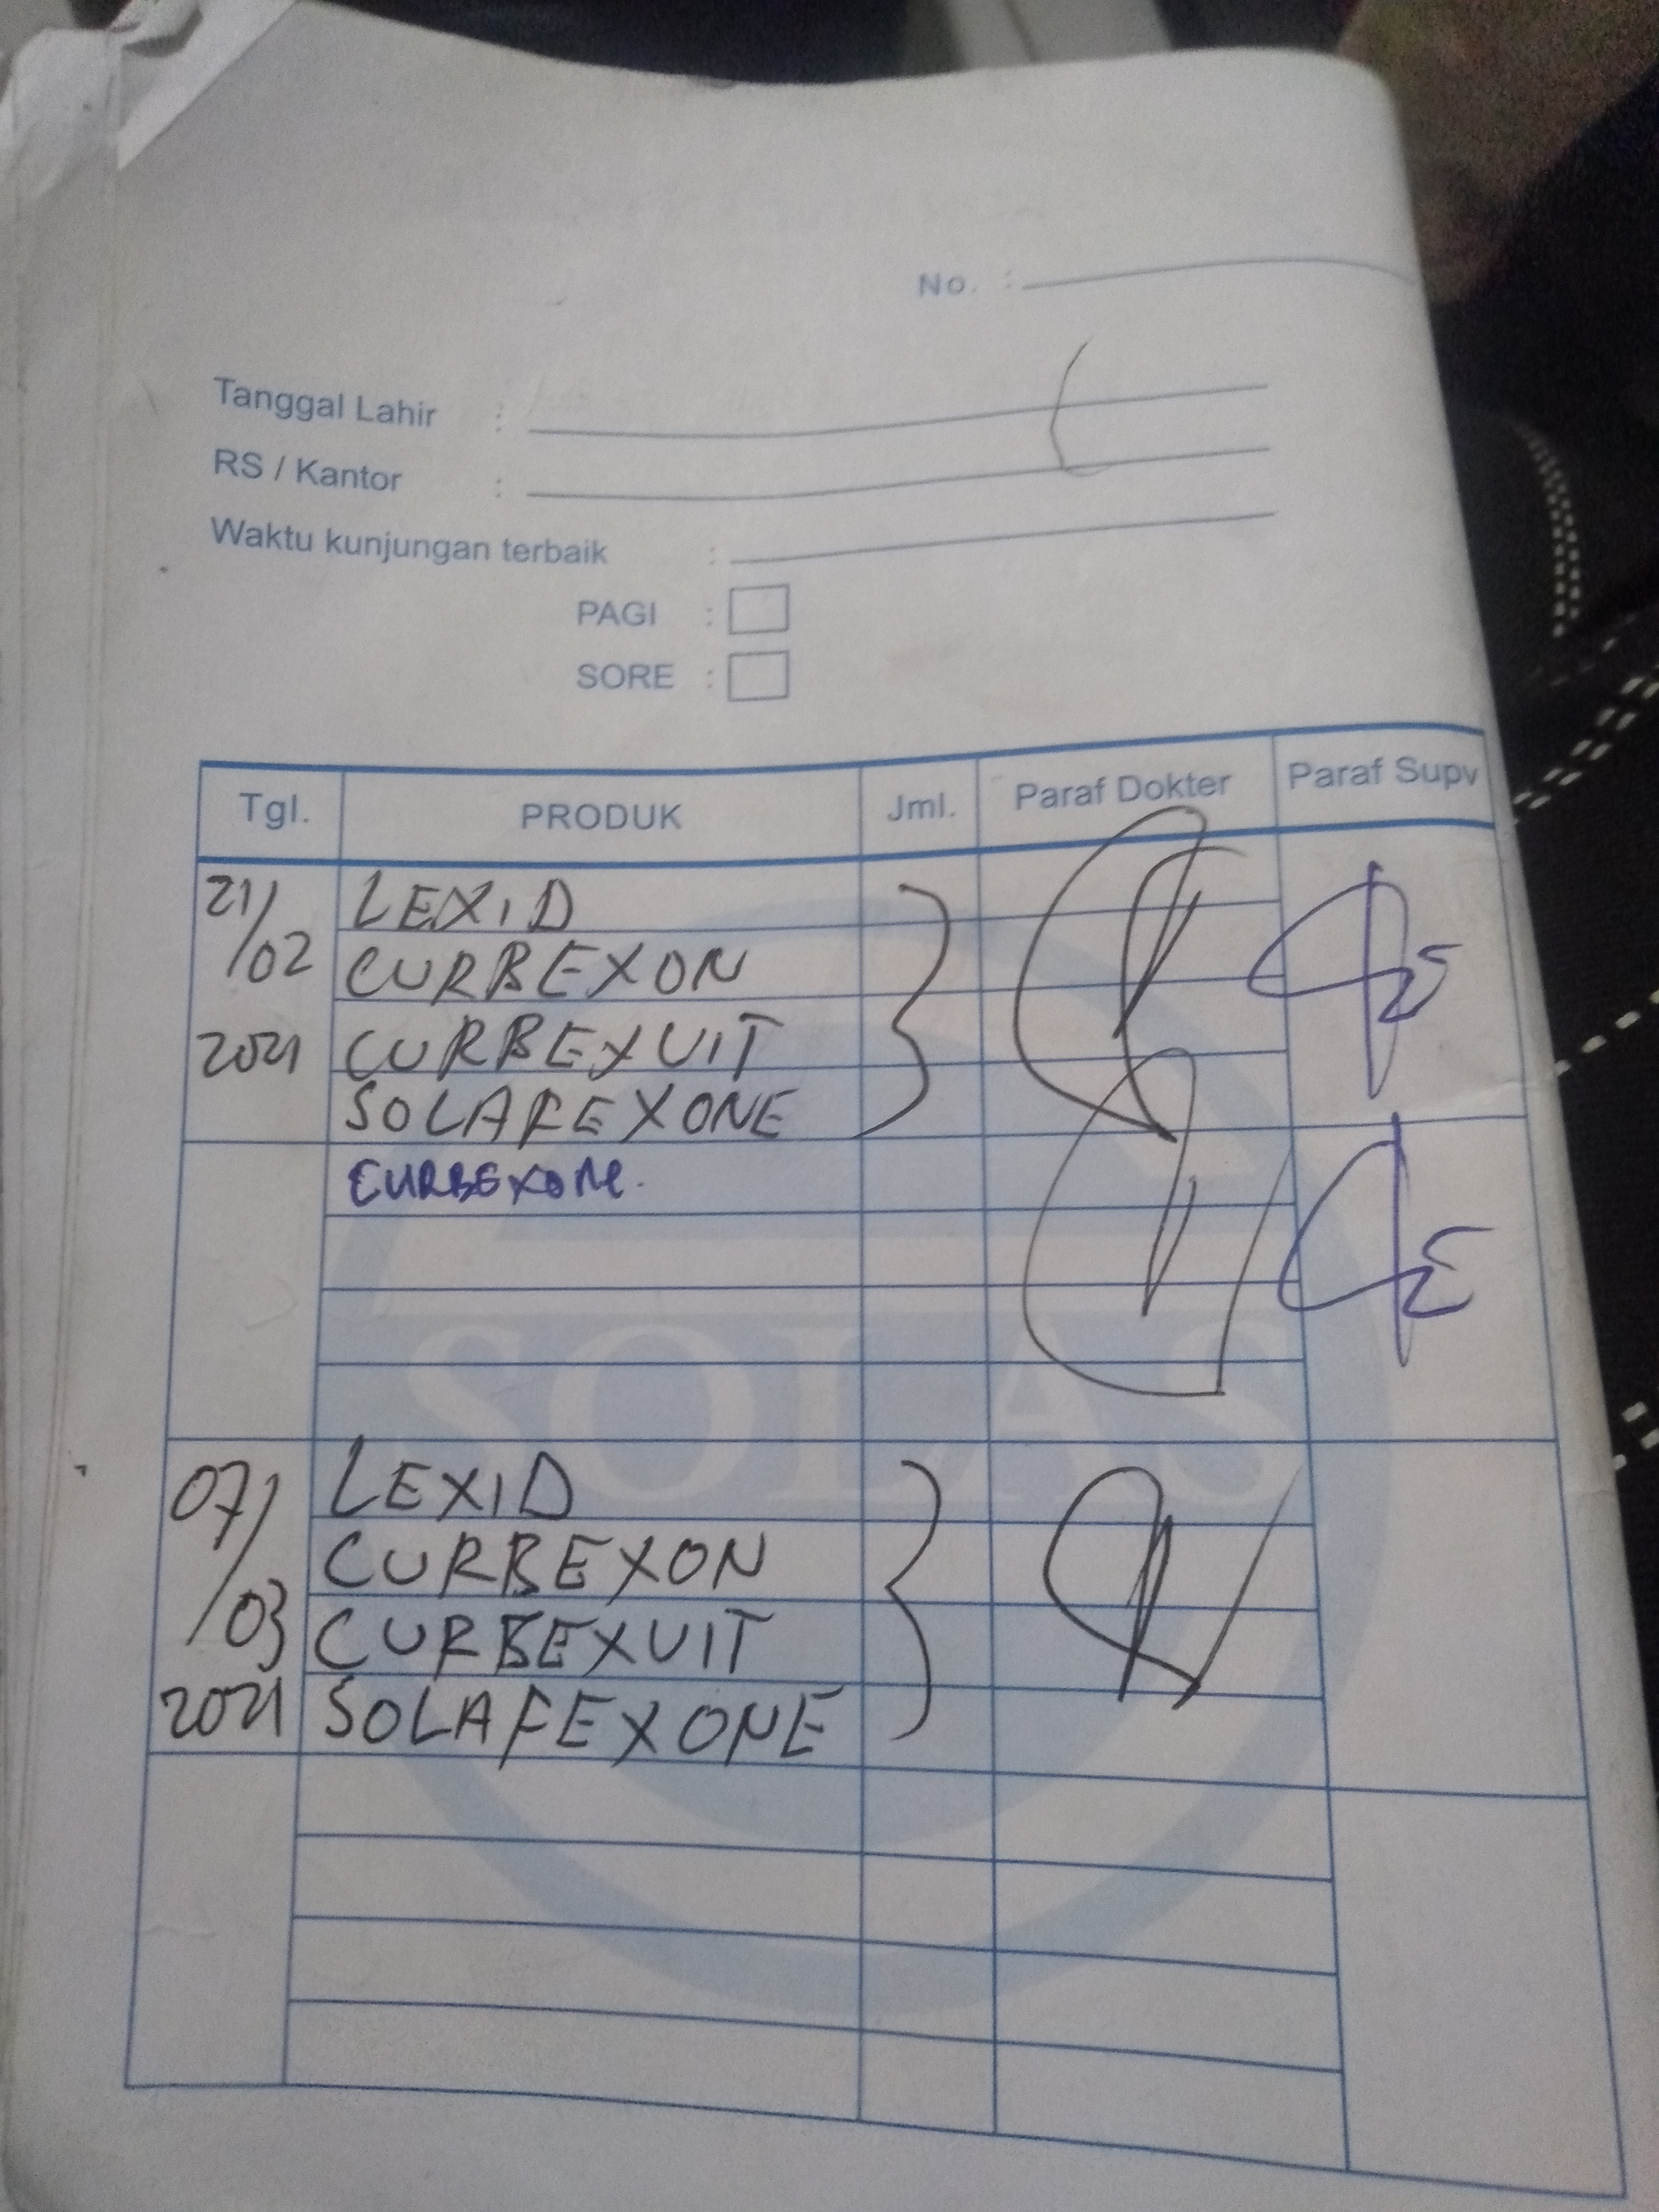 No. :
Tanggal Lahir :
RS / Kantor :
Waktu kunjungan terbaik :
PAGI :
SORE :
Tgl. PRODUK Jml. Paraf Dokter Paraf Supv
21/02 2021 LEXID
CURBEXON
CURBEXUIT
SOLAFEXONE
CURBEXONE.
SOLAS
07/03 2021 LEXID
CURBEXON
CURBEXUIT
SOLAFEXONE